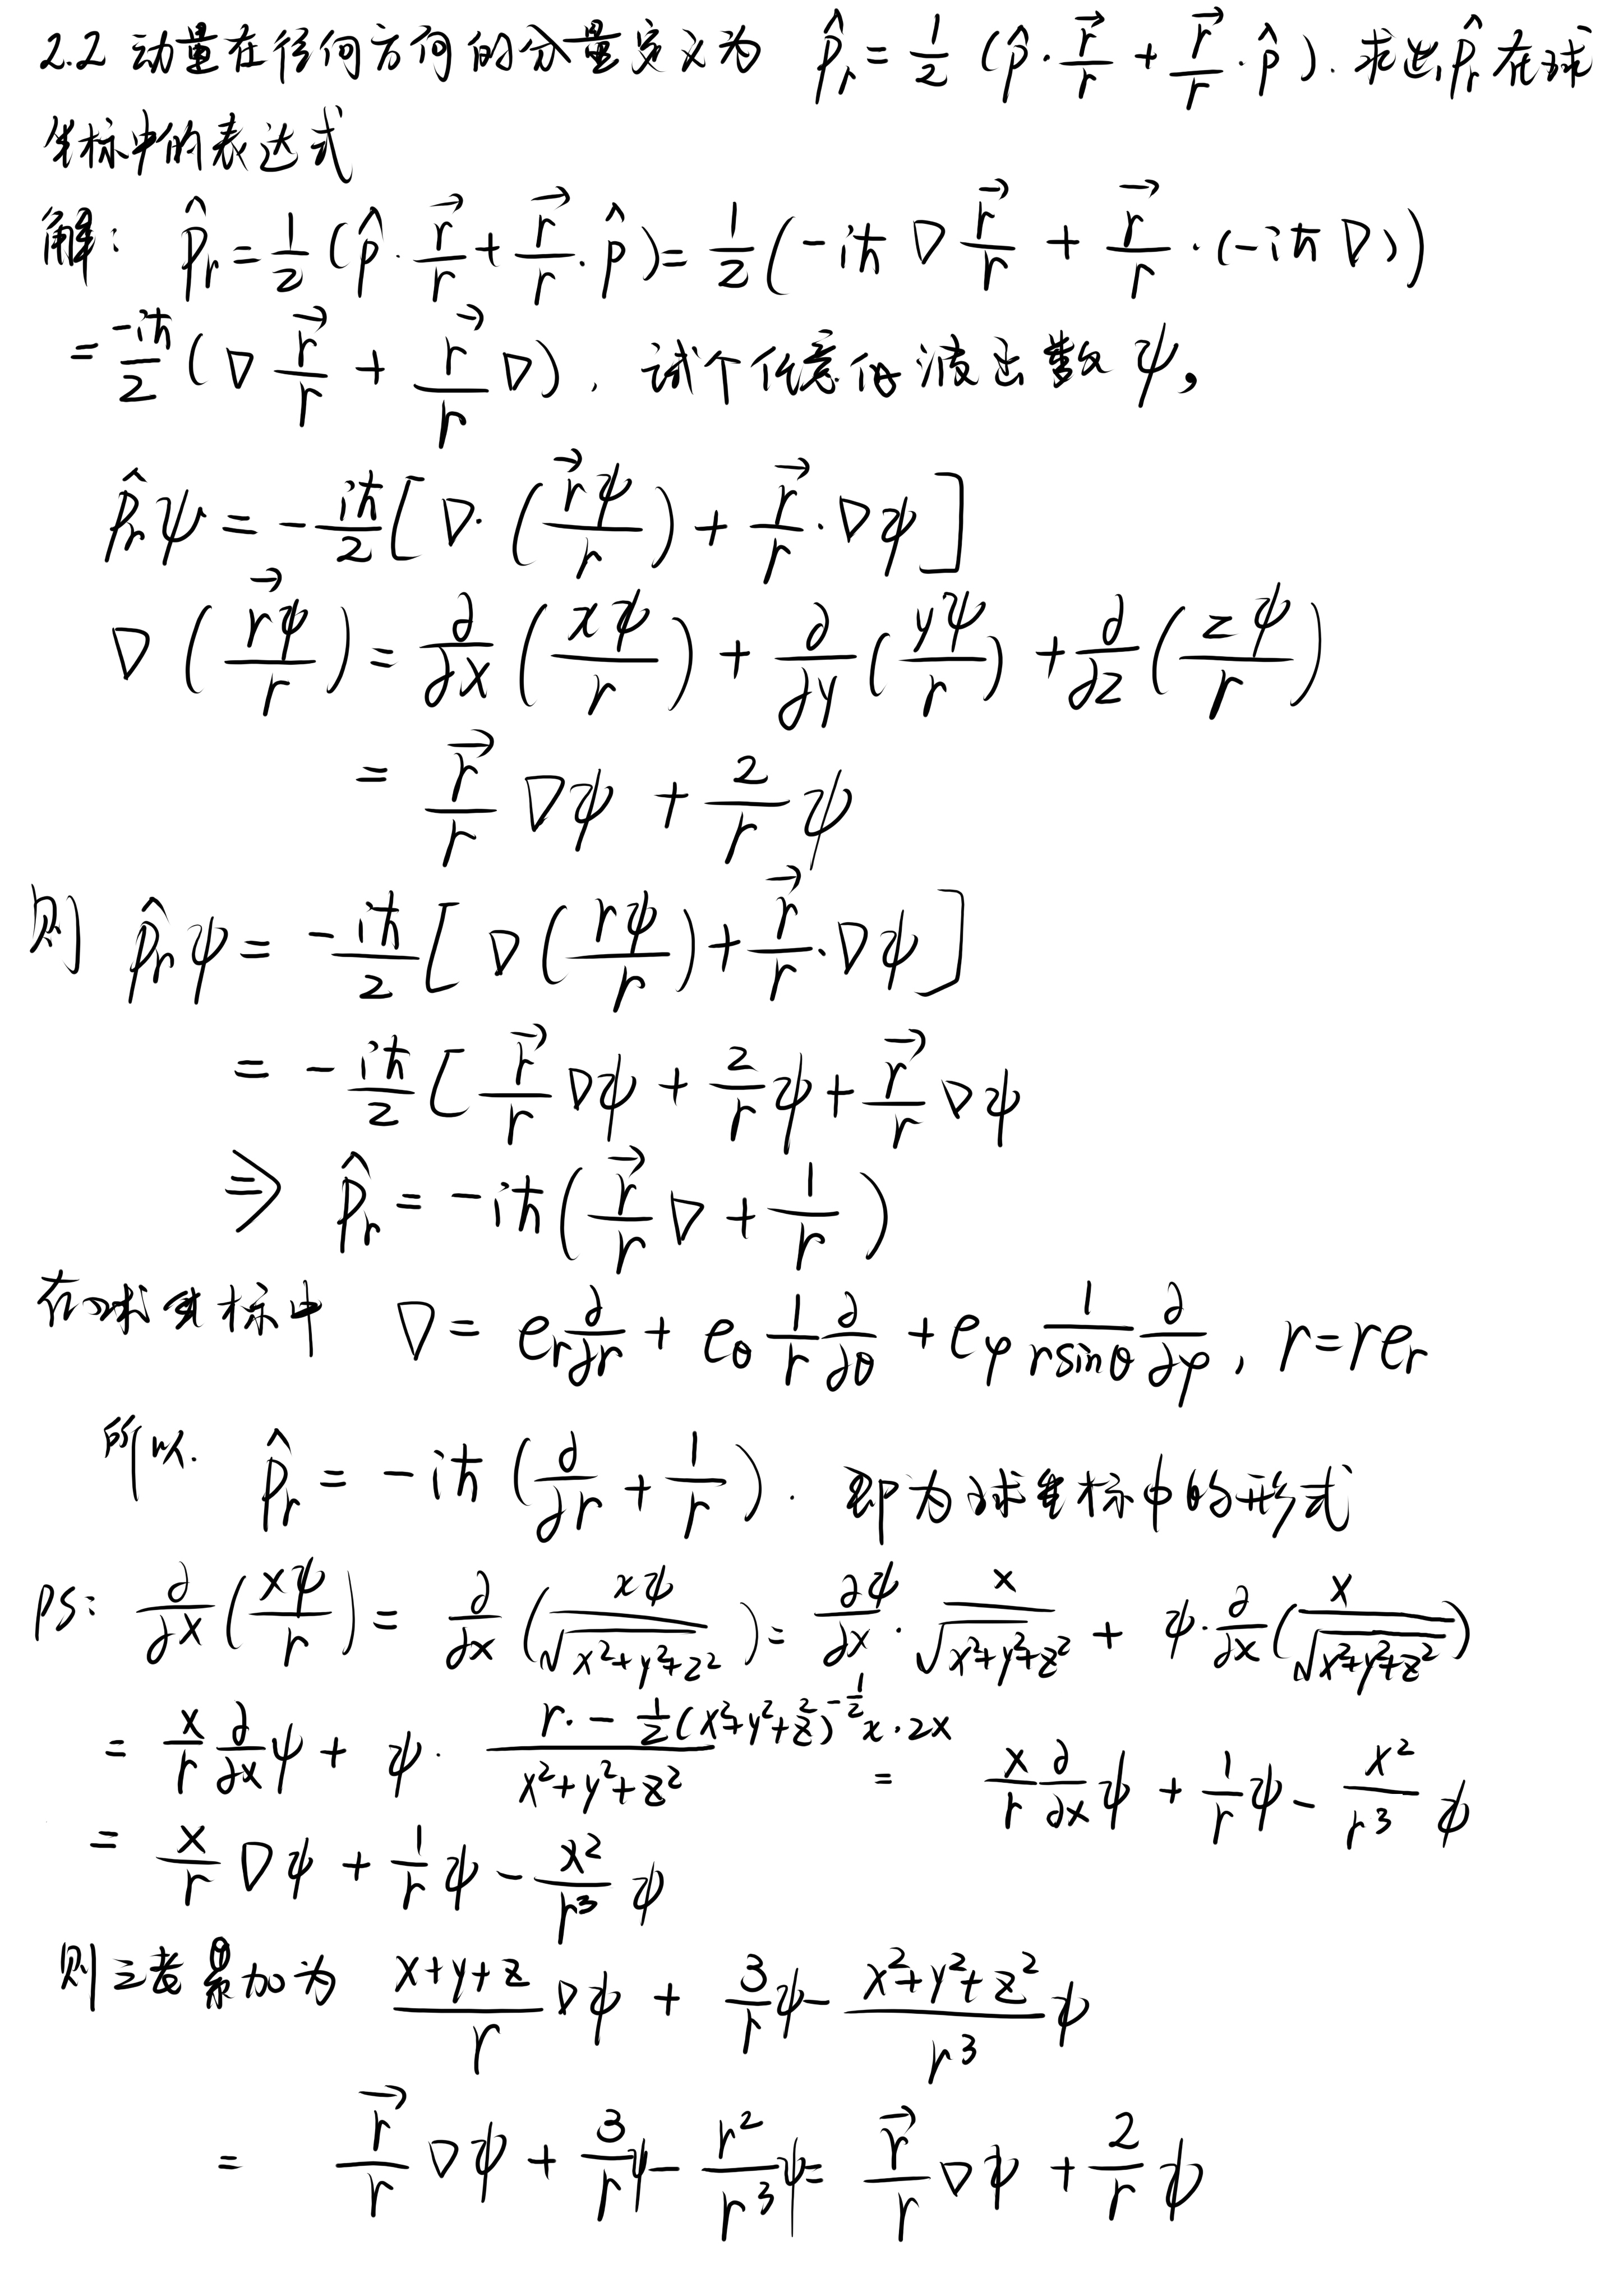 2.2 动量在径向方向的分量定义为 p̂_r = 1/2 (p̂·r⃗/r + r⃗/r·p̂). 求出p̂_r在球
坐标中的表达式
解: p̂_r = 1/2 (p̂·r⃗/r + r⃗/r·p̂) = 1/2 (-iħ ∇ r⃗/r + r⃗/r·(-iħ∇))
= -iħ/2 (∇ r⃗/r + r⃗/r ∇), 试个任意的波函数ψ,
p̂_r ψ = -iħ/2 [∇·(r⃗ψ/r) + r⃗/r·∇ψ]
∇(r⃗ψ/r) = ∂/∂x (xψ/r) + ∂/∂y (yψ/r) + ∂/∂z (zψ/r)
= r⃗/r ∇ψ + 2/r ψ
则 p̂_r ψ = -iħ/2 [∇(rψ/r) + r⃗/r·∇ψ]
= -iħ/2 [r⃗/r ∇ψ + 2/r ψ + r⃗/r ∇ψ
⇒ p̂_r = -iħ(r⃗/r ∇ + 1/r)
在球坐标中 ∇ = e_r ∂/∂r + e_θ 1/r ∂/∂θ + e_φ 1/(r sinθ) ∂/∂φ, r = re_r
所以. p̂_r = -iħ (∂/∂r + 1/r). 即为球坐标中的形式
PS: ∂/∂x (xψ/r) = ∂/∂x (xψ/√(x²+y²+z²)) = ∂ψ/∂x · x/√(x²+y²+z²) + ψ·∂/∂x (x/√(x²+y²+z²))
= x/r ∂/∂x ψ + ψ· (r·-1/2(x²+y²+z²)^(-1/2) x·2x)/(x²+y²+z²) = x/r ∂/∂x ψ + 1/r ψ - x²/r³ ψ
= x/r ∇ψ + 1/r ψ - x²/r³ ψ
则三者累加为 (x+y+z)/r ∇ψ + 3/r ψ - (x²+y²+z²)/r³ ψ
= r⃗/r ∇ψ + 3/r ψ - r²/r³ ψ = r⃗/r ∇ψ + 2/r ψ